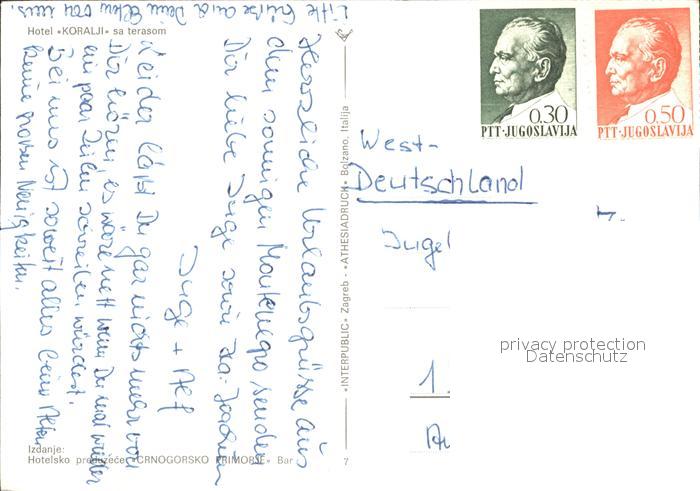 Hotel »KORALJI« sa terasom
Herzliche Urlaubsgrüsse aus
dem sonnigen Montenegro senden
Dir liebe Inge sowie
Inge + Alf
Leider lässt Du gar nichts mehr von
Dir hören, es wäre nett wenn Du mal wieder
ein paar Zeilen schreiben würdest.
Bei uns ist soweit alles beim Alten
keine großen Neuigkeiten.
Bitte Grüsse auch Deine Eltern von uns.
Izdanje:
Hotelsko preduzeće »CRNOGORSKO PRIMORJE« Bar
7
»INTERPUBLIC« Zagreb - »ATHESIADRUCK« Bolzano, Italija
0.30
PTT·JUGOSLAVIJA
0.50
PTT·JUGOSLAVIJA
West-
Deutschland
1.
privacy protection
Datenschutz